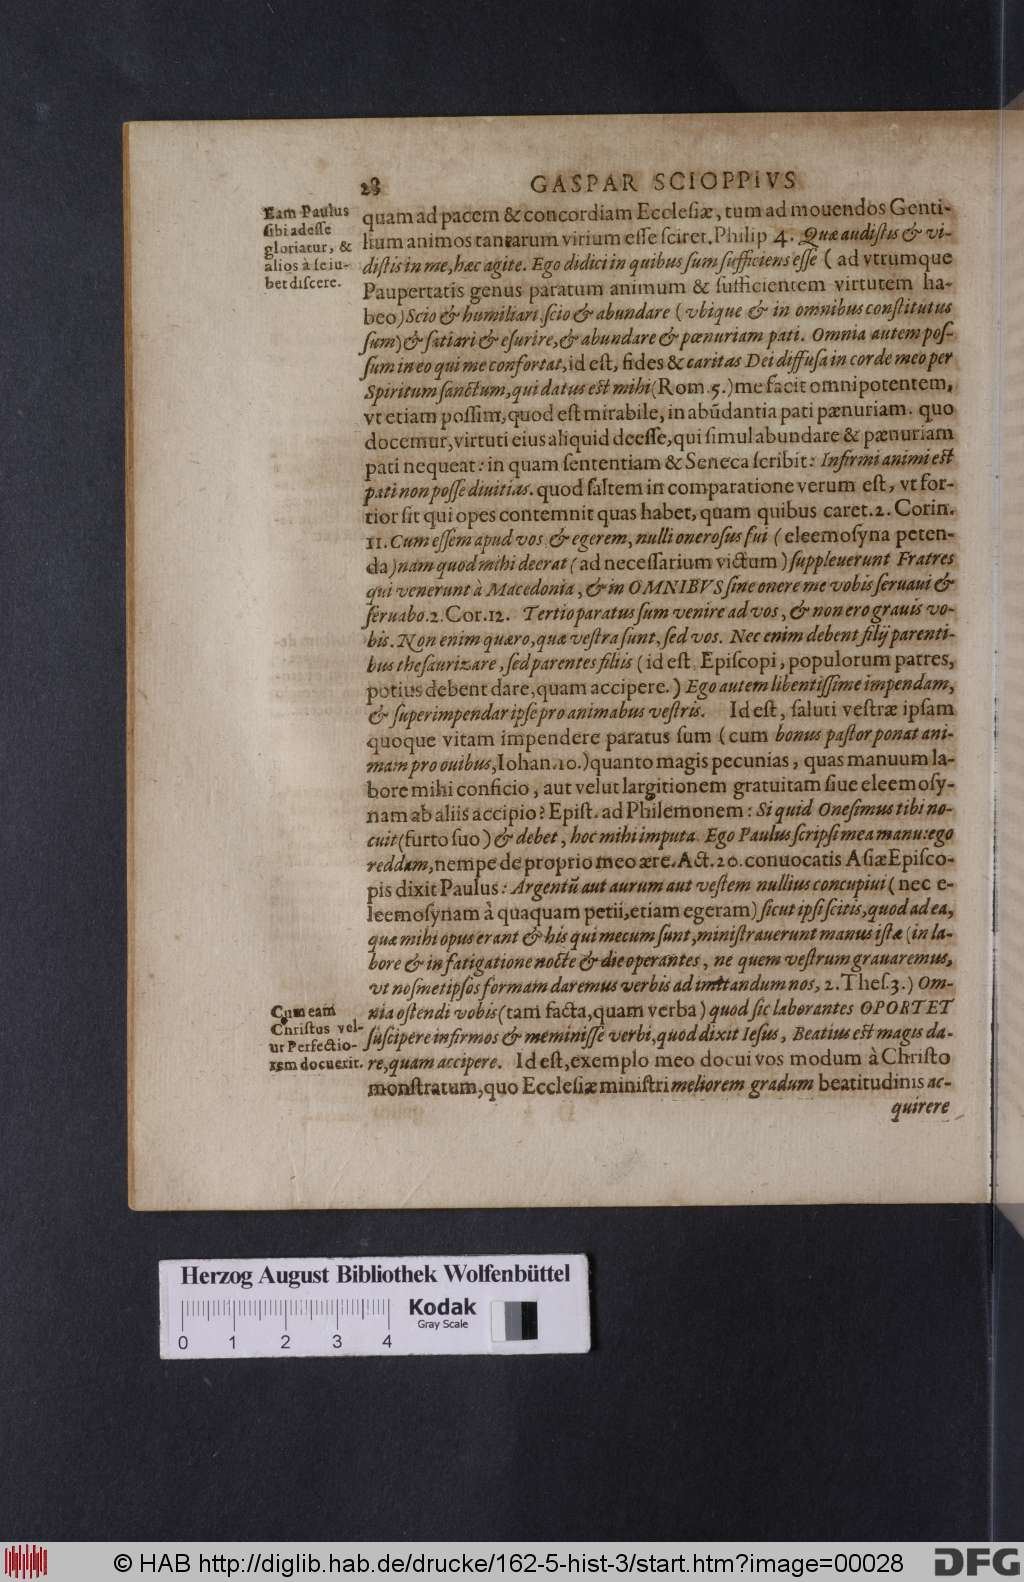 28
GASPAR SCIOPPIVS
Eam Paulus
sibi adesse
gloriatur, &
alios à se iu-
bet discere.
quam ad pacem & concordiam Ecclesiæ, tum ad mouendos Genti-
lium animos tantarum virium esse sciret. Philip 4. Quæ audistis & vi-
distis in me, hæc agite. Ego didici in quibus sum sufficiens esse ( ad vtrumque
Paupertatis genus paratum animum & sufficientem virtutem ha-
beo) Scio & humiliari, scio & abundare ( vbique & in omnibus constitutus
sum) & satiari & esurire, & abundare & pœnuriam pati. Omnia autem pos-
sum in eo qui me confortat, id est, fides & caritas Dei diffusa in corde meo per
Spiritum sanctum, qui datus est mihi (Rom. 5.) me facit omnipotentem,
vt etiam possim, quod est mirabile, in abūdantia pati pænuriam. quo
docemur, virtuti eius aliquid deesse, qui simul abundare & pænuriam
pati nequeat: in quam sententiam & Seneca scribit: Infirmi animi est
pati non posse diuitias. quod saltem in comparatione verum est, vt for-
tior sit qui opes contemnit quas habet, quam quibus caret. 2. Corin.
11. Cum essem apud vos & egerem, nulli onerosus fui ( eleemosyna peten-
da) nam quod mihi deerat ( ad necessarium victum ) suppleuerunt Fratres
qui venerunt à Macedonia, & in OMNIBVS sine onere me vobis seruaui &
seruabo. 2. Cor. 12. Tertio paratus sum venire ad vos, & non ero grauis vo-
bis. Non enim quæro, quæ vestra sunt, sed vos. Nec enim debent filij parenti-
bus thesaurizare, sed parentes filiis ( id est Episcopi, populorum patres,
potius debent dare, quam accipere.) Ego autem libentissime impendam,
& superimpendar ipse pro animabus vestris. Id est, saluti vestræ ipsam
quoque vitam impendere paratus sum ( cum bonus pastor ponat ani-
mam pro ouibus, Iohan. 10.) quanto magis pecunias, quas manuum la-
bore mihi conficio, aut velut largitionem gratuitam siue eleemosy-
nam ab aliis accipio? Epist. ad Philemonem: Si quid Onesimus tibi no-
cuit (furto suo) & debet, hoc mihi imputa. Ego Paulus scripsi mea manu: ego
reddam, nempe de proprio meo ære. Act. 20. conuocatis Asiæ Episco-
pis dixit Paulus: Argentū aut aurum aut vestem nullius concupiui ( nec e-
leemosynam à quaquam petii, etiam egeram) sicut ipsi scitis, quod ad ea,
quæ mihi opus erant & his qui mecum sunt, ministrauerunt manus istæ (in la-
bore & in fatigatione nocte & die operantes, ne quem vestrum grauaremus,
vt nosmetipsos formam daremus verbis ad imitandum nos, 2. Thes. 3.) Om-
nia ostendi vobis (tam facta, quam verba) quod sic laborantes OPORTET
suscipere infirmos & meminisse verbi, quod dixit Iesus, Beatius est magis da-
re, quam accipere. Id est, exemplo meo docui vos modum à Christo
monstratum, quo Ecclesiæ ministri meliorem gradum beatitudinis ac-
quirere
Cum eam
Christus vel-
ut Perfectio-
rem docuerit.
Herzog August Bibliothek Wolfenbüttel
0 1 2 3 4
Kodak
Gray Scale
© HAB http://diglib.hab.de/drucke/162-5-hist-3/start.htm?image=00028
DFG